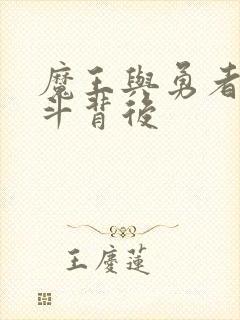 魔王與勇者
斗背後
王慶蓮